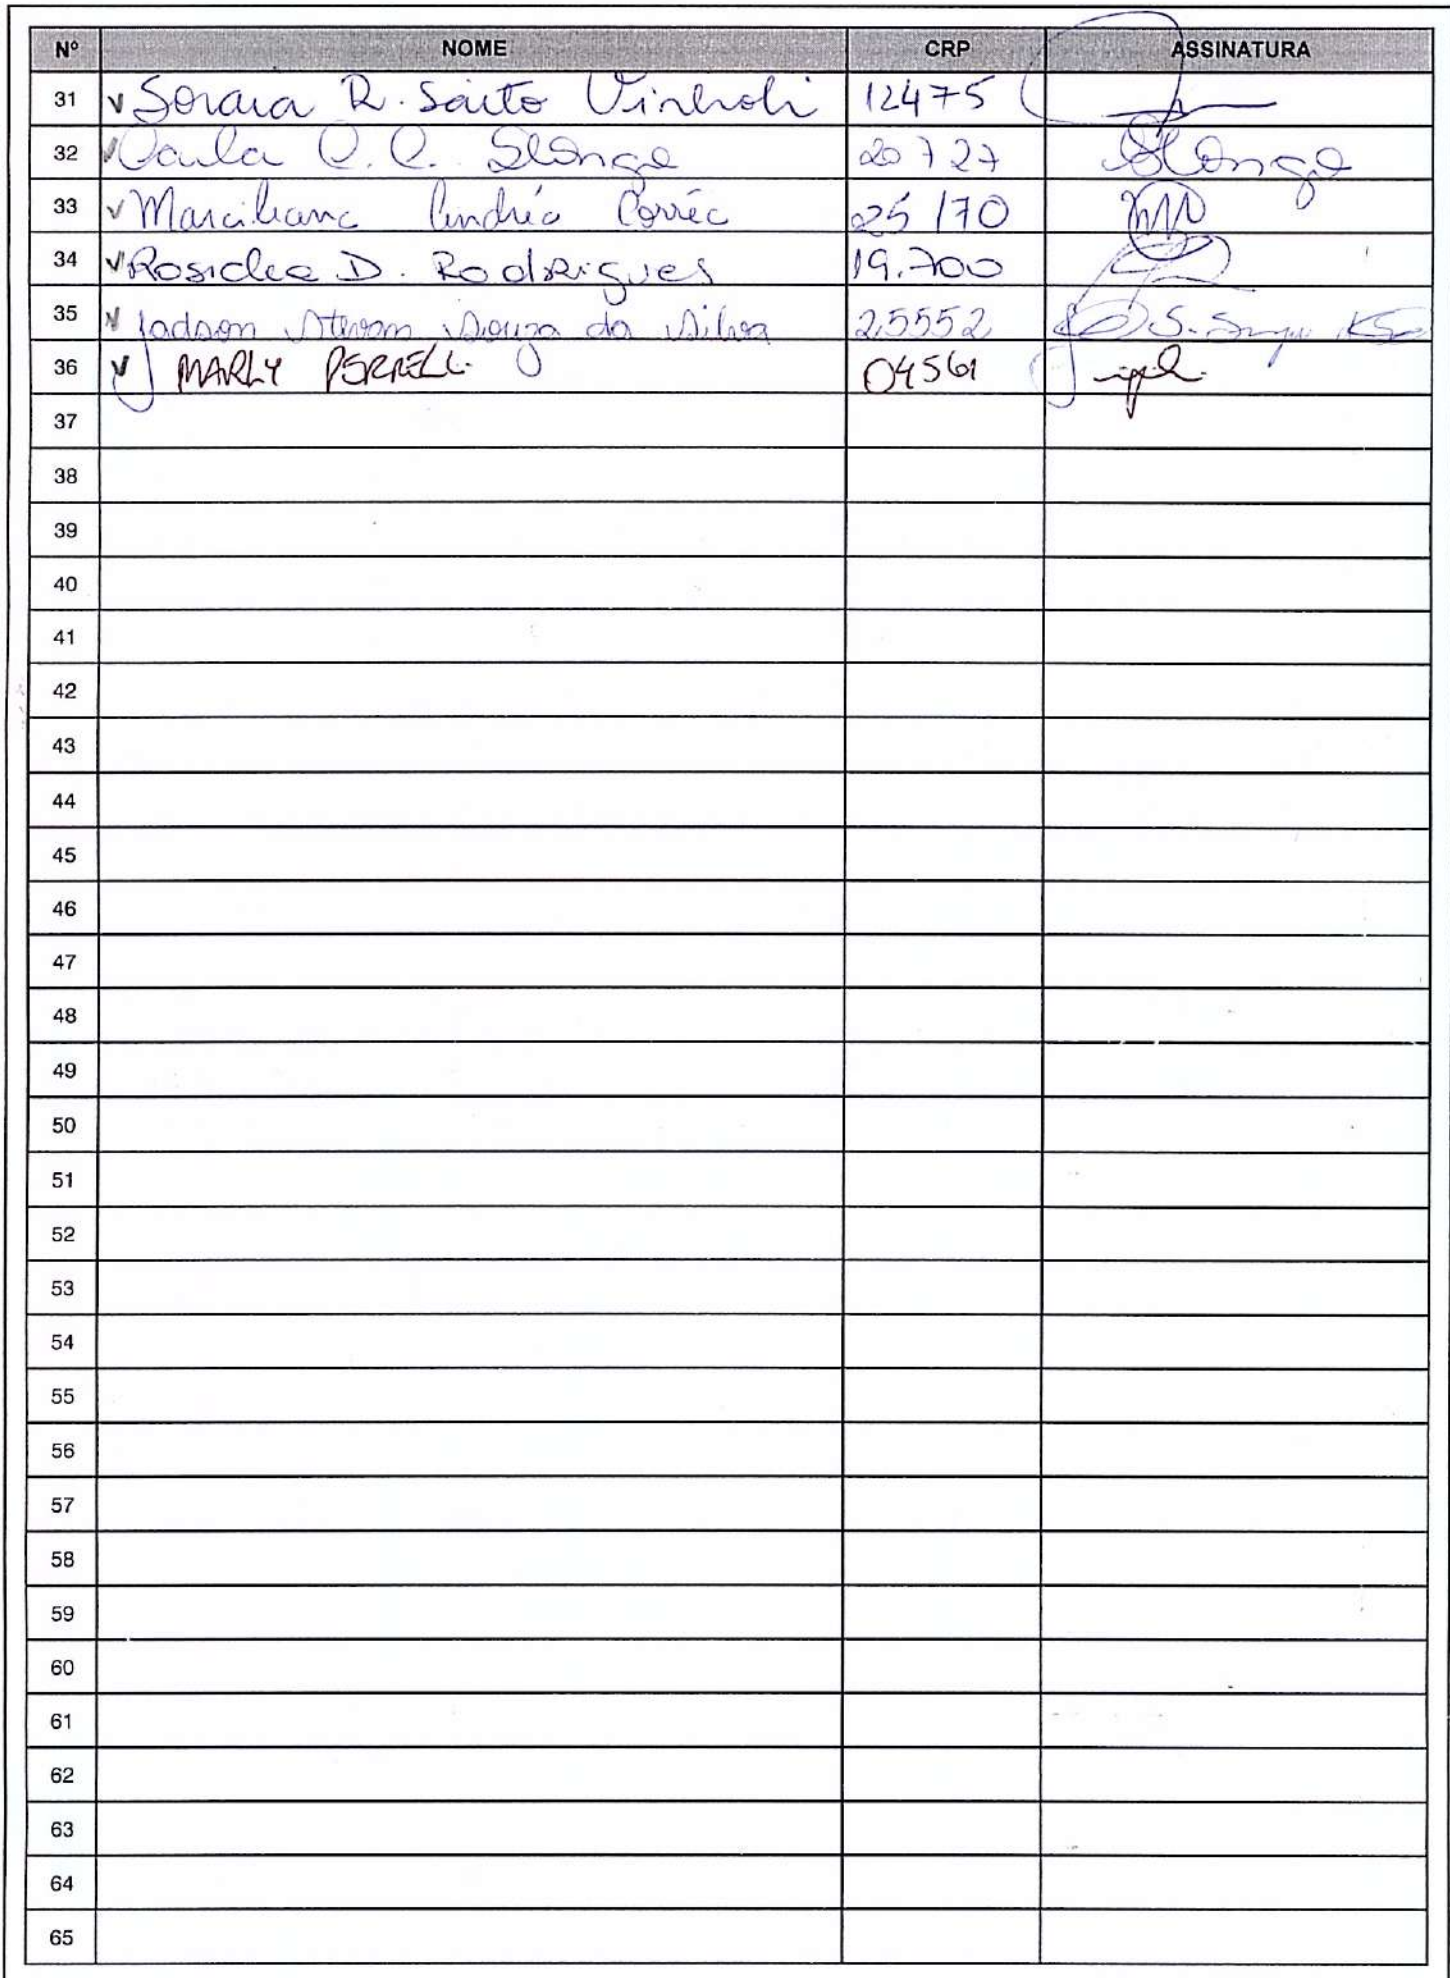 Nº NOME CRP ASSINATURA
31 Soraia R. Saito Vinholi 12475
32 Paula C. C. Slonge 20727 Slonge
33 Marciliana Andréa Corrêa 25170
34 Rosiclea D. Rodrigues 19.700
35 Jadson Stevan Souza da Silva 25552
36 MARLY PERRELL 04561
37
38
39
40
41
42
43
44
45
46
47
48
49
50
51
52
53
54
55
56
57
58
59
60
61
62
63
64
65